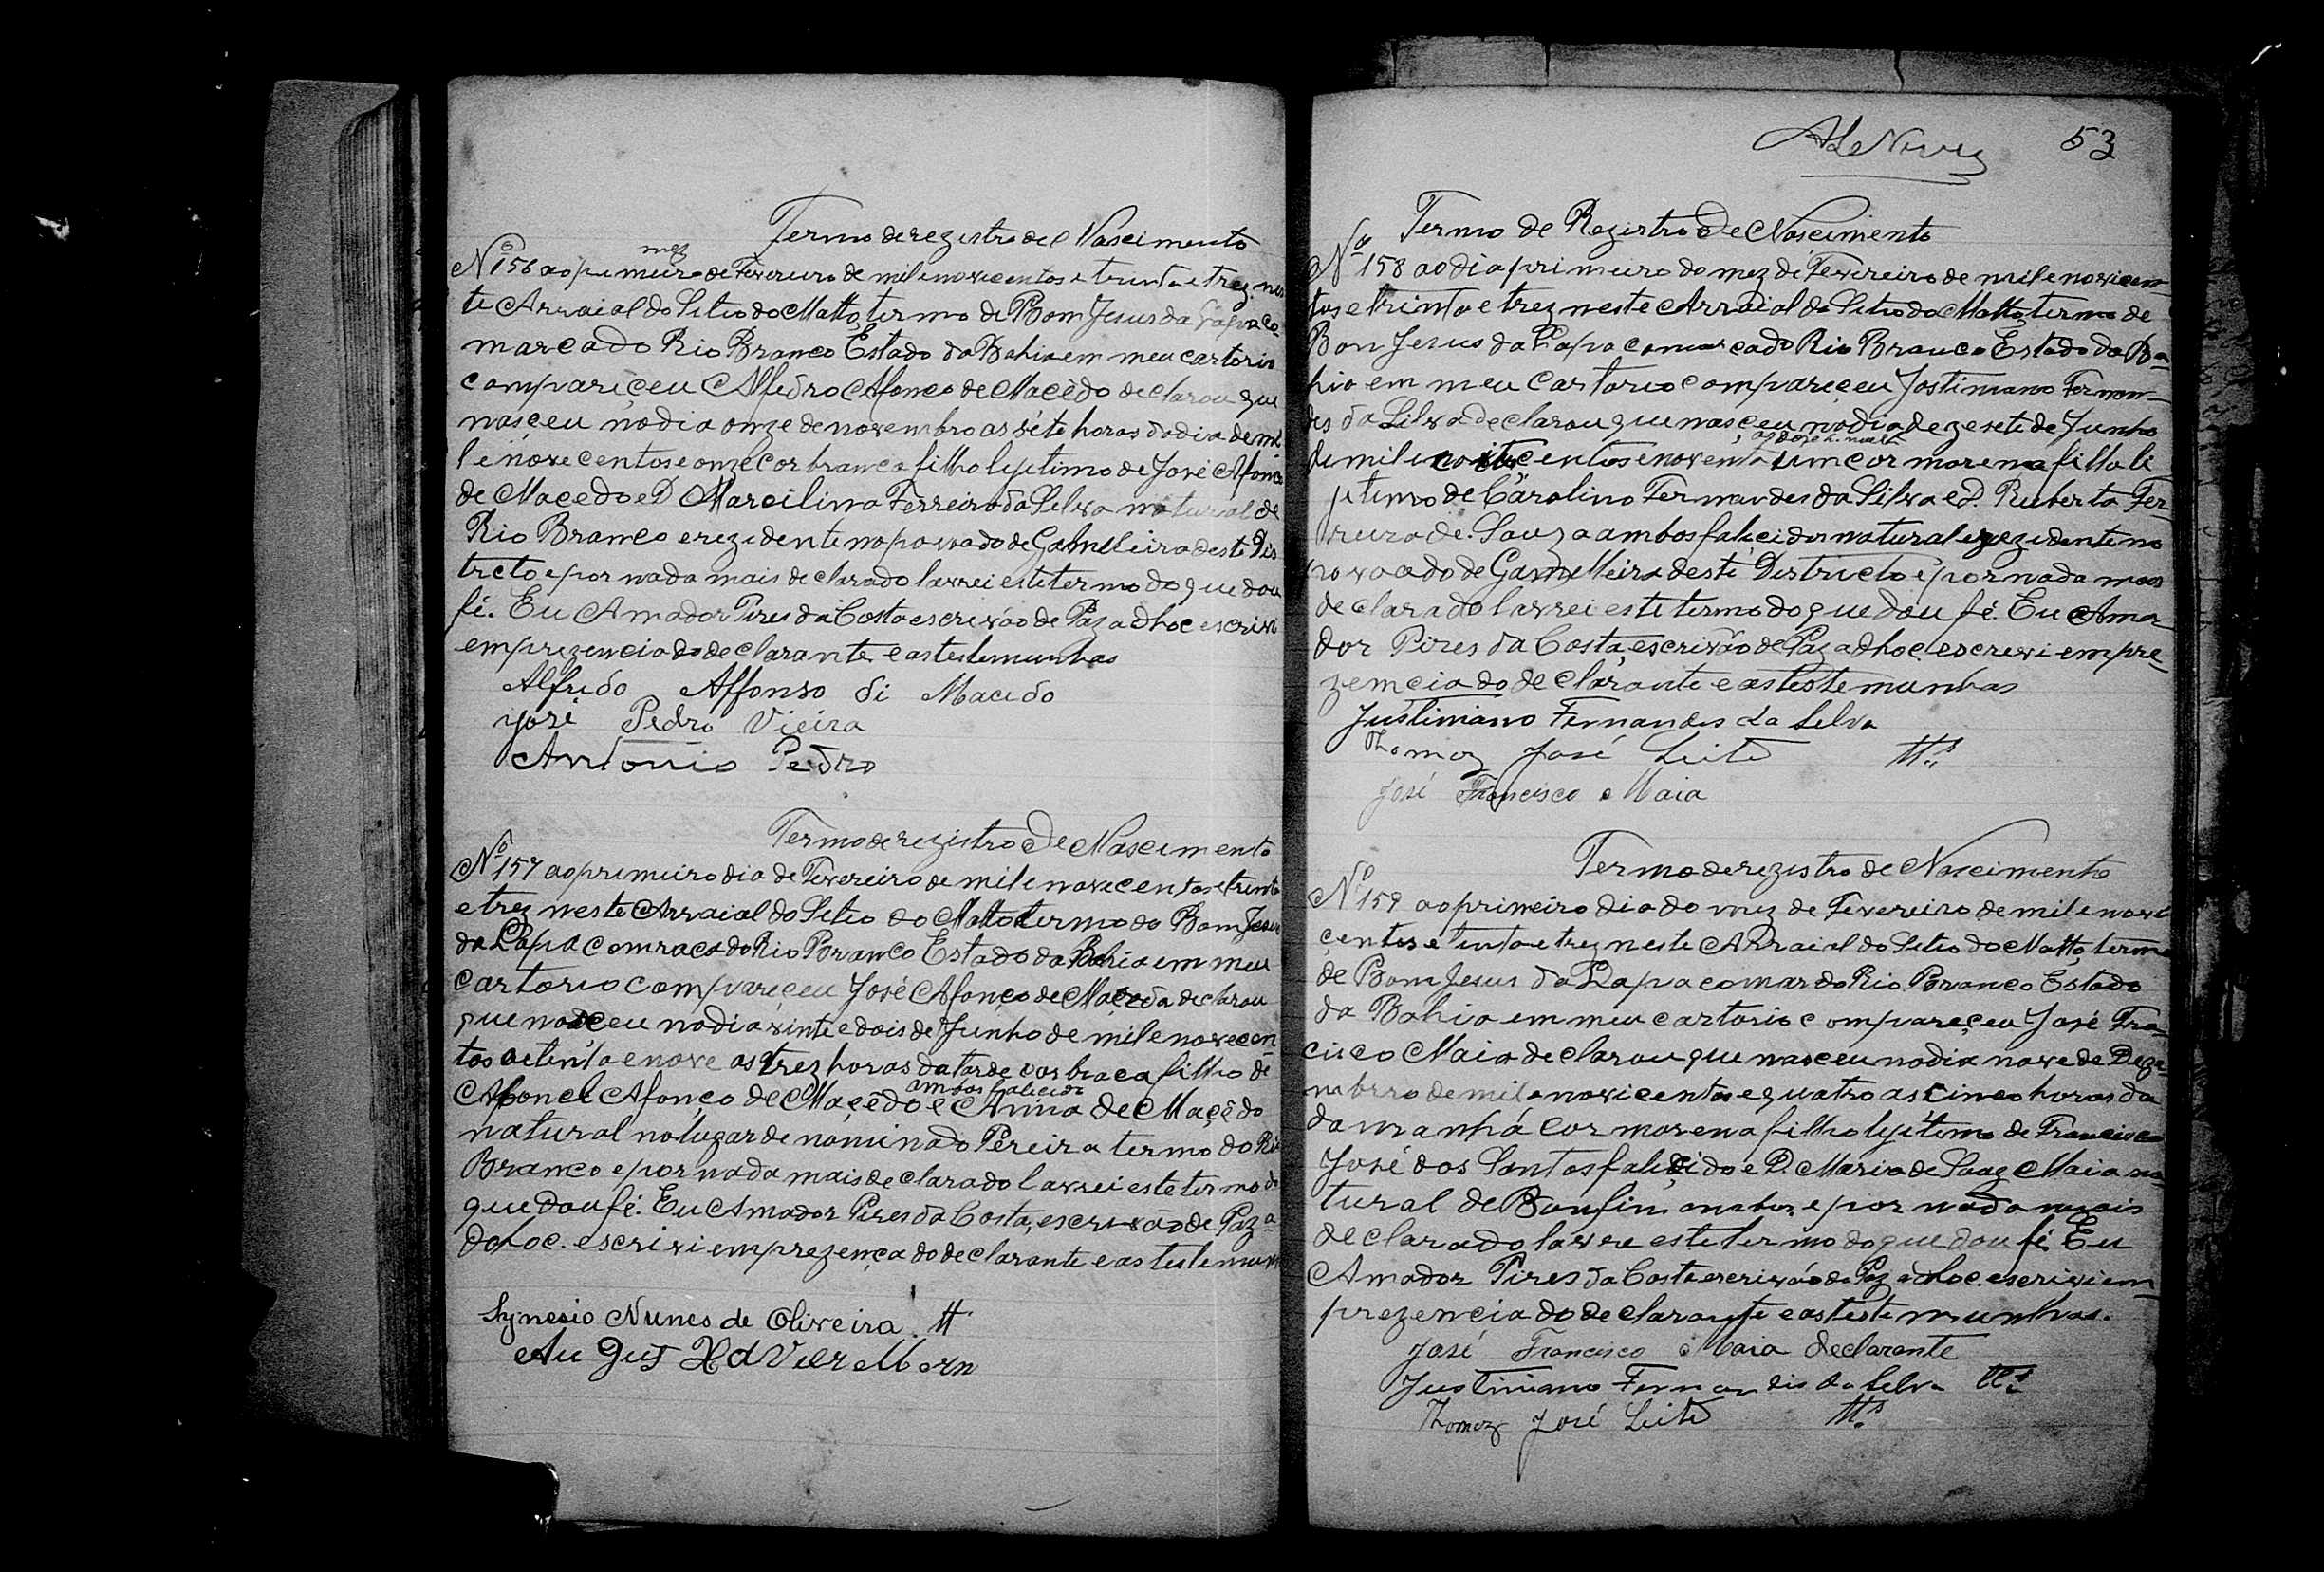 Termo de registro de Nascimento
mez
Nº 156 ao primeiro de Fevereiro de mil e novecentos e trinta e trez nes
te Arraial do Sitio do Matto, termo de Bom Jesus da Lapa co-
marca do Rio Branco Estado da Bahia em meu cartorio
compareceu Alfedro Afonco de Macêdo declarou que
nasceu no dia onze de novembro as séte horas do dia de mi
l e novecentos e onze cor branca filho legitimo de José Afonco
de Macedo e D Marcilina Ferreira da Silva natural de
Rio Branco e rezidente no povoado de Gameleira deste Dis
treto e por nada mais declarado lavrei este termo do que dou
fé. Eu Amador Pires da Costa escrivão de Paz adhoc escrivi
em prezencia do declarante e as testemunhas
Alfredo Affonso di Macedo
José Pedro Vieira
Antonio Pedro
Termo de registro de Nascimento
Nº 157 ao primeiro dia de Fevereiro de mil e novecentos e trinta
e trez neste Arraial do Sitio do Matto termo do Bom Jesus
da Lapa comraca do Rio Branco Estado da Bahia em meu
cartorio compareçeu José Afonço de Maçedo declarou
que nasceu no dia vinte e dois de Junho de mil e novecen
tos oetenta e nove as trez horas da tarde cor braca filho de
ambos falecido
Afonço de Maçêdo e Anna de Maçêdo
natural no lugar de nominado Pereira termo do Rio
Branco e por nada mais declarado lavrei este termo do
que dou fé. Eu Amador Pires da Costa, escrivão de Paz a-
dohoc. escrivi em prezença do declarante e as testemun
Synesio Nunes de Oliveira. tt
ALeNeves 53
Termo de Registro de Nascimento
Nº 158 ao dia primeiro do mez de Fevereiro de mil e novicen-
tos e trinta e trez neste Arraial do Sitio do Matto, termo de
Bom Jesus da Lapa comarca do Rio Branco Estado da Ba-
hia em meu cartorio compareçeu Jostiniano Fernan-
des da Silva declarou que nasceu no dia dezesete de Junho
de mil e oitocentos e noventa um cor morena filho li
jitimo de Carolino Fernandes da Silva e D. Ruberta Fer-
reira de Souza ambos faliçidos natural e rezidente no
povoado de Gamelleira deste Districto e por nada mais
declarado lavrei este termo do que dou fé. Eu Ama-
dor Pires da Costa, escrivão de Paz adhoc. escrevi em pre-
zencia do declarante e as testemunhas
Justiniano Fernandes da Silva
Thomaz José Leite tt.ª
José Francisco Maia
Termo de registro de Nascimento
Nº 159 ao primeiro dia do mez de Fevereiro de mil e nove
centos e tinta e trez neste Arraial do Sitio do Matto, termo
de Bom Jesus da Lapa comar do Rio Branco Estado
da Bahia em meu cartorio compareçeu José Fra-
cisco Maia declarou que nasceu no dia nove de Deze-
mbrro de mil e novicentos e quatro as cinco horas da
da manhá cor morena filho lejitimo de Francisco
José dos Santos faliçido e D. Maria de Maia na-
tural de Bonfin ambos, e por nada mais
declarado lavre este termo do que dou fé. Eu
Amador Pires da Costa escrivão de Paz adhoc. escrivi em
prezencia do declarante e as testemunhas.
José Francisco Maia declarante
Justiniano Fernandis da Silva tt.ª
Thomaz José Leite tt.ª